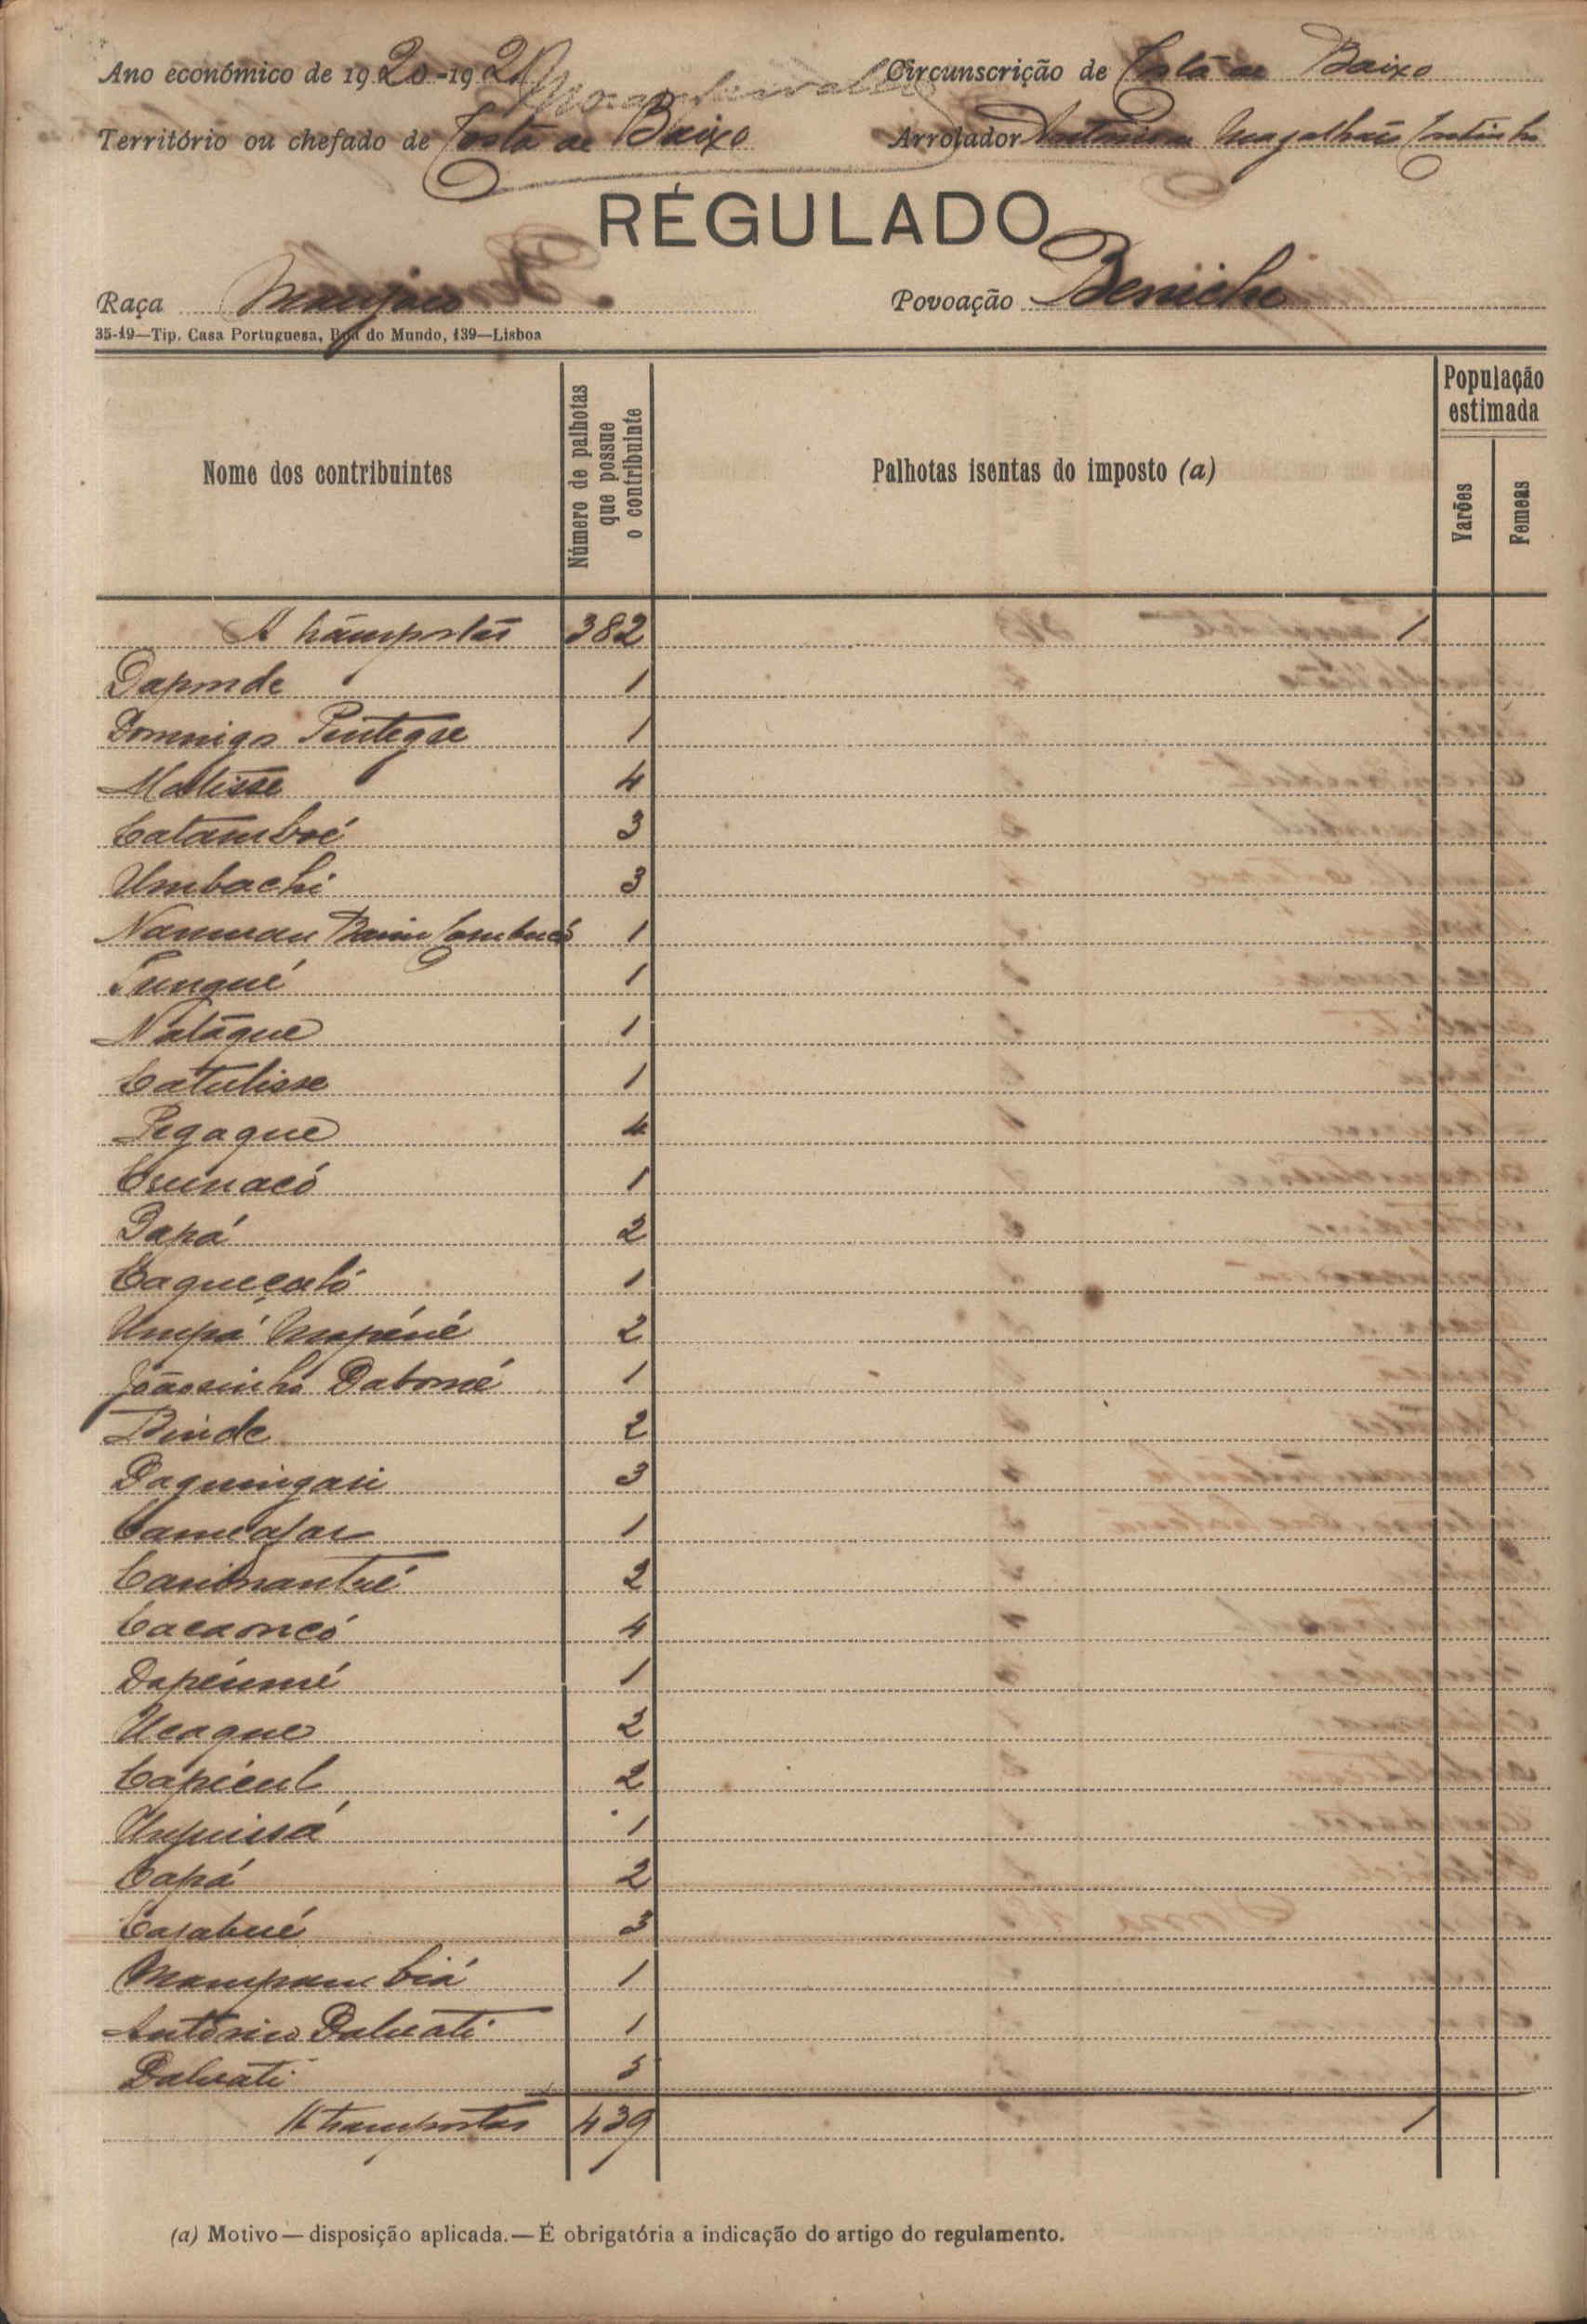 Ano económico de 1920-1921 Circunscrição de Costa de Baixo
Território ou chefado de Costa de Baixo Arrolador Magalhães
RÉGULADO
Raça Manjaco Povoação Beniche
35-19—Tip. Casa Portuguesa, Rua do Mundo, 139—Lisboa
Nome dos contribuintes
Número de palhotas que possue o contribuinte
Palhotas isentas do imposto (a)
População estimada
Varões
Femeas
A transportar 382 1
Dapinde 1
Domingo 1
Matisse 4
Catamboé 3
Umbachi 3
Namuau 1
Tungué 1
Natãque 1
Catulisse 1
Pegaque 4
Cumacó 1
Papá 2
Caqueçaló 1
Umpá 2
Joãosinho Dabomé 1
Binde 2
Daquingari 3
1
2
Cacaoncó 4
1
Ucaque 2
Capicul 2
1
Capá 2
Casabué 3
Mampambiá 1
António Daluati 1
Daluati 5
A transportar 439 1
(a) Motivo — disposição aplicada. — É obrigatória a indicação do artigo do regulamento.